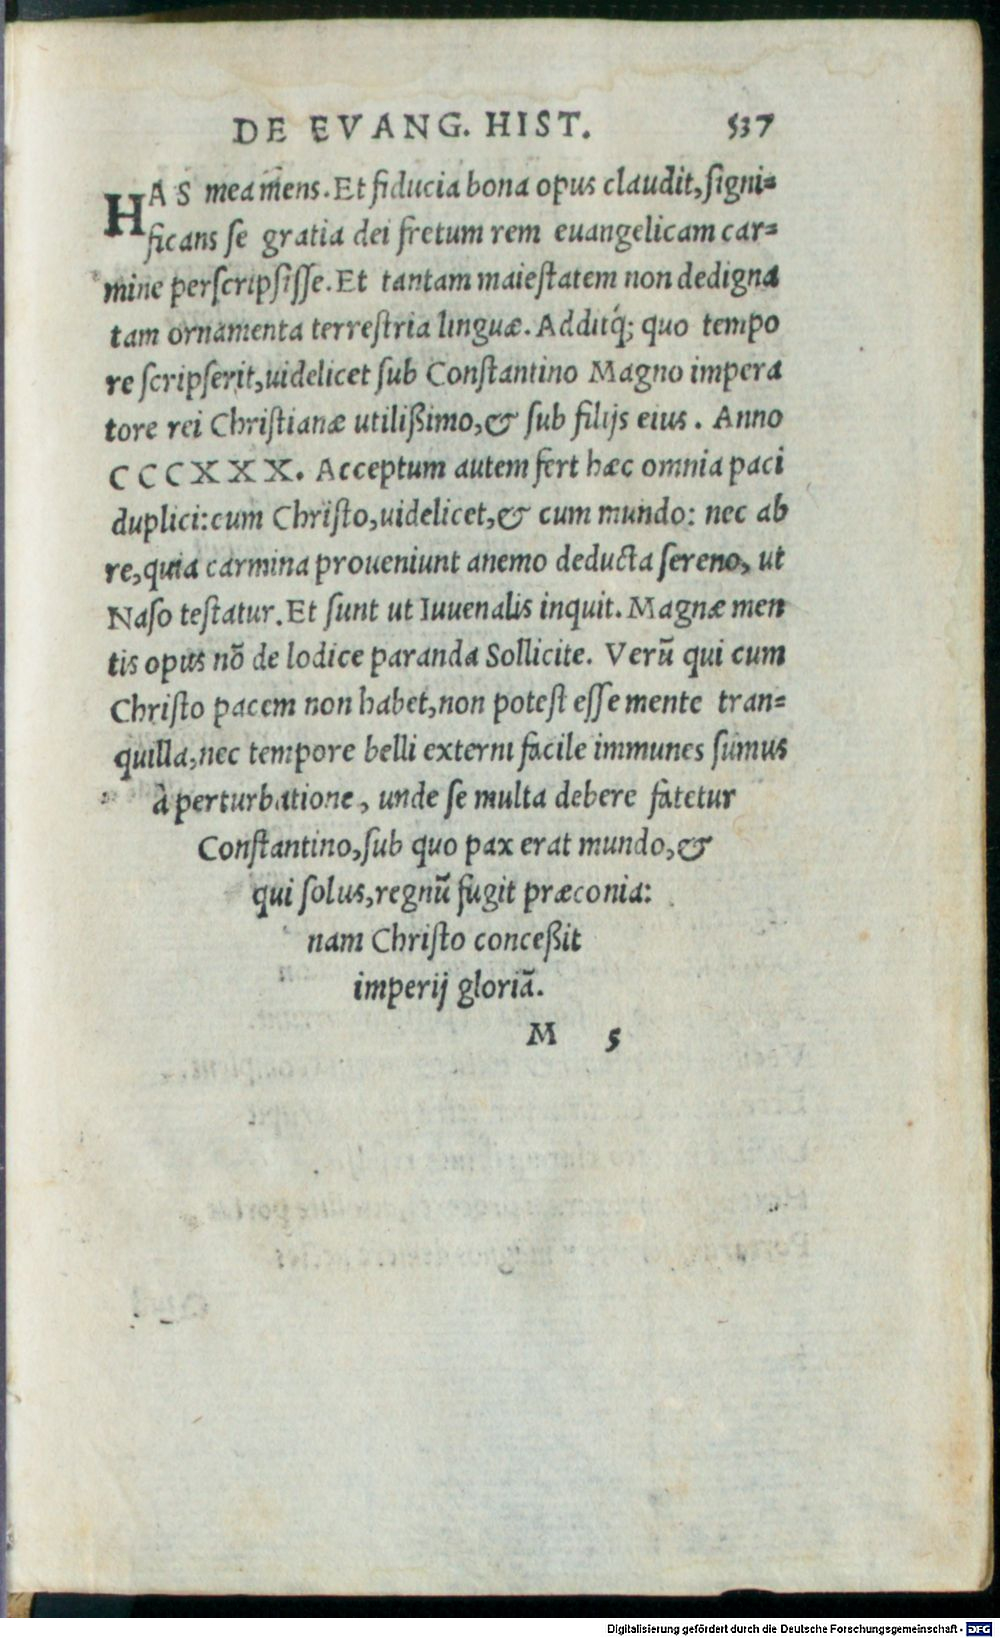 DE EVANG. HIST. 537
HAS mea mens. Et fiducia bona opus claudit, signi=
ficans se gratia dei fretum rem euangelicam car=
mine perscripsisse. Et tantam maiestatem non dedigna
tam ornamenta terrestria linguæ. Additq́; quo tempo
re scripserit, uidelicet sub Constantino Magno impera
tore rei Christianæ utilißimo, & sub filijs eius. Anno
CCCXXX. Acceptum autem fert hæc omnia paci
duplici: cum Christo, uidelicet, & cum mundo: nec ab
re, quia carmina proueniunt anemo deducta sereno, ut
Naso testatur. Et sunt ut Iuuenalis inquit. Magnæ men
tis opus nõ de lodice paranda Sollicite. Verũ qui cum
Christo pacem non habet, non potest esse mente tran=
quilla, nec tempore belli externi facile immunes sumus
à perturbatione, unde se multa debere fatetur
Constantino, sub quo pax erat mundo, &
qui solus, regnũ fugit præconia:
nam Christo conceßit
imperij gloriã.
M 5
Digitalisierung gefördert durch die Deutsche Forschungsgemeinschaft - DFG